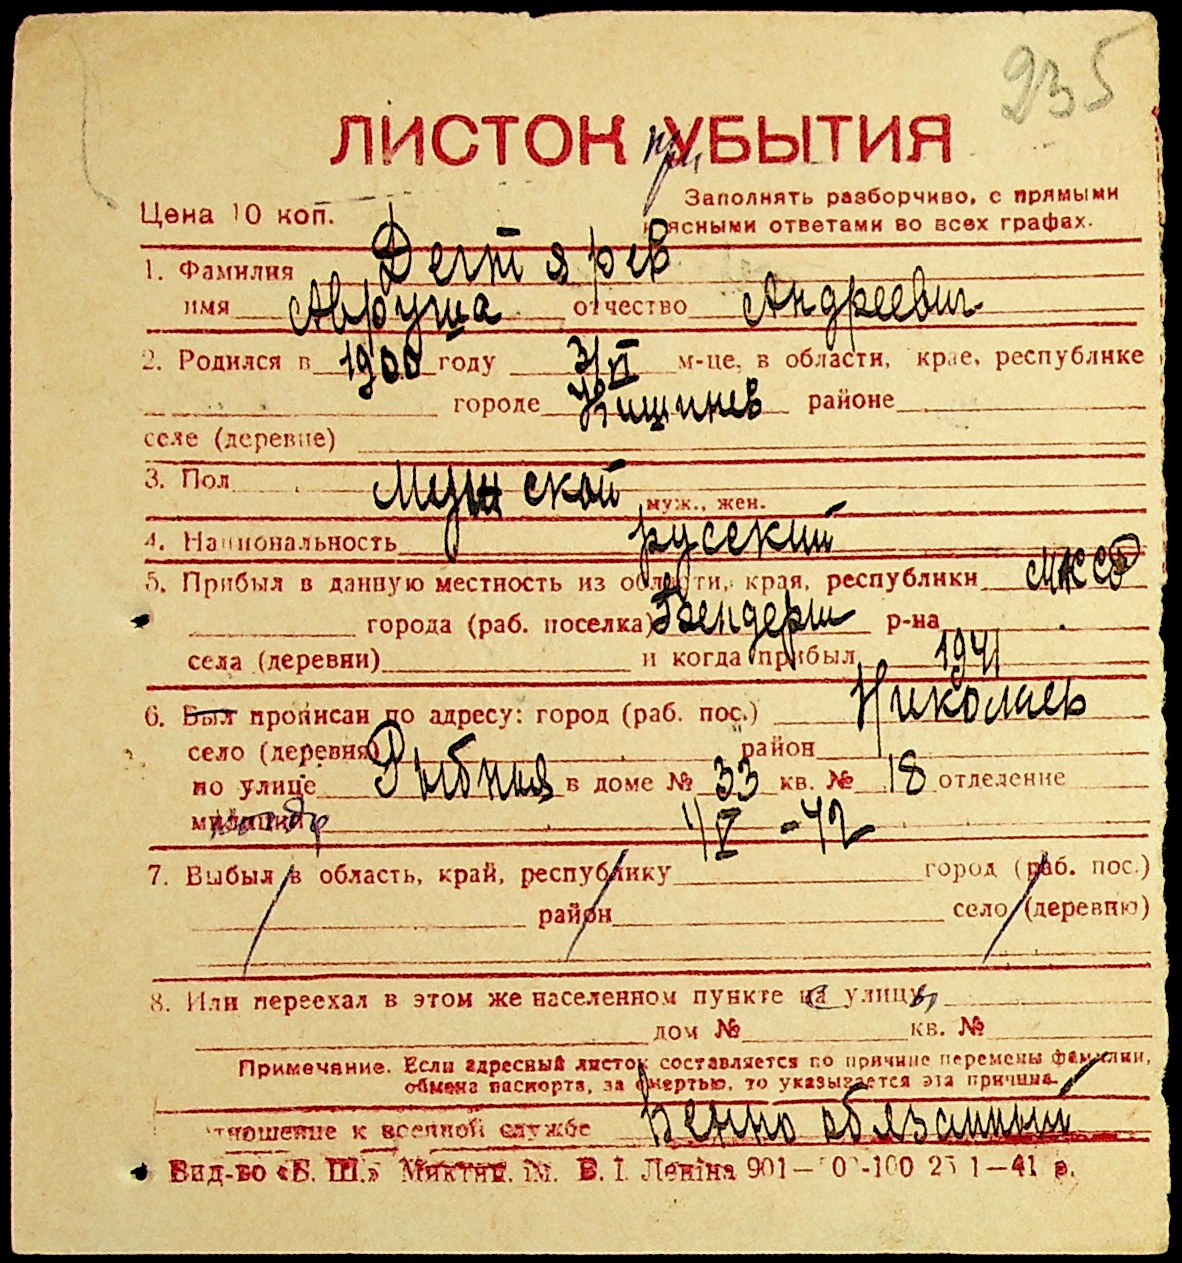 235
ЛИСТОК при УБЫТИЯ
Цена 10 коп.
Заполнять разборчиво, с прямыми
и ясными ответами во всех графах.
1. Фамилия Дегтярев
имя Авруша отчество Андреевич
2. Родился в 1900 году 3/VI м-це, в области, крае, республике
городе Кишинев районе
селе (деревне)
3. Пол Мужской муж., жен.
4. Национальность русский
5. Прибыл в данную местность из области, края, республики
города (раб. поселка) Бендеры р-на
села (деревни) и когда прибыл 1941
6. Был прописан по адресу: город (раб. пос.) Николаев
село (деревня) район
по улице Рыбная в доме № 33 кв. № 18 отделение
милиции 1/V -42
7. Выбыл в область, край, республику город (раб. пос.)
район село (деревню)
8. Или переехал в этом же населенном пункте на улицу
дом № кв. №
Примечание. Если адресный листок составляется по причине перемены фамилии,
обмена паспорта, за смертью, то указывается эта причина.
тношение к военной службе Венно обязанный
Вид-во «Б. Ш.» Миктип. ім. В. І. Леніна 901— 41 р.